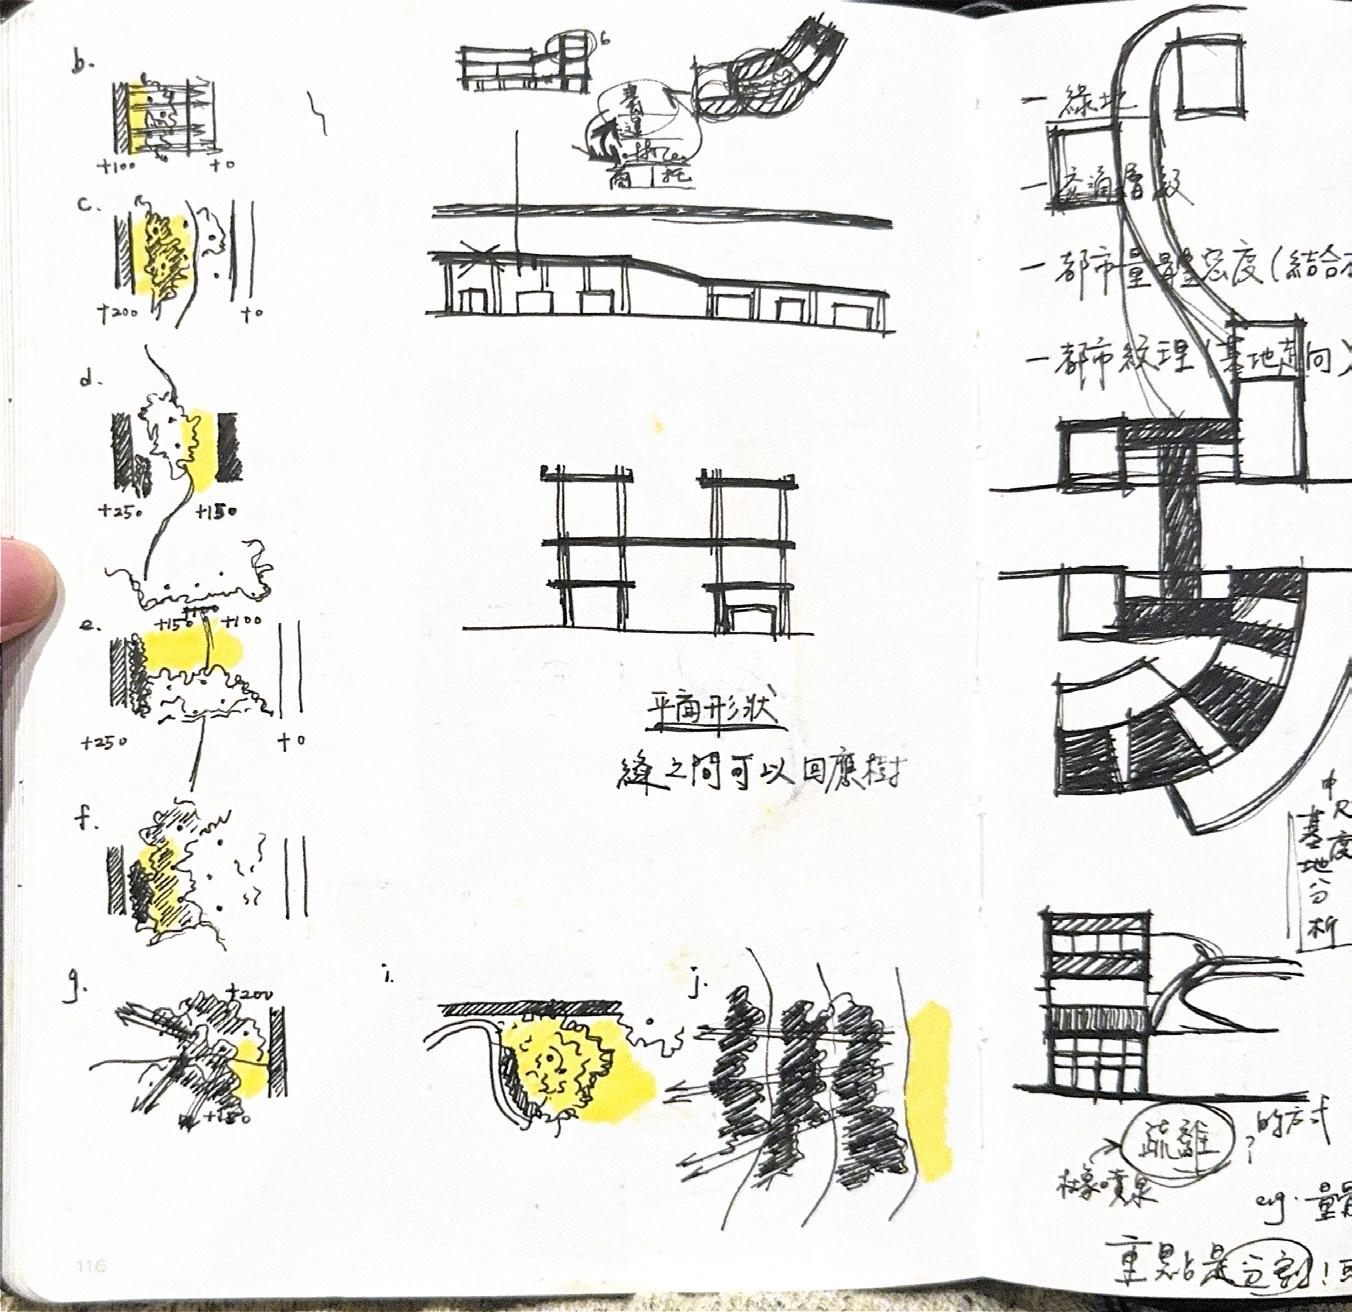 b.
+100 +0
c.
+200 +0
d.
+250 +150
e.
+150 +100
+250 +0
f.
g.
+200
+150
i.
j.
6
平面形狀
縫之間可以回應樹
116
一 綠地
一 交通層級
一 都市量體密度(結合
一 都市紋理(基地走向)
中尺度
基地分析
疏離
的方式
?
噴泉
eg. 量
重點是分割!